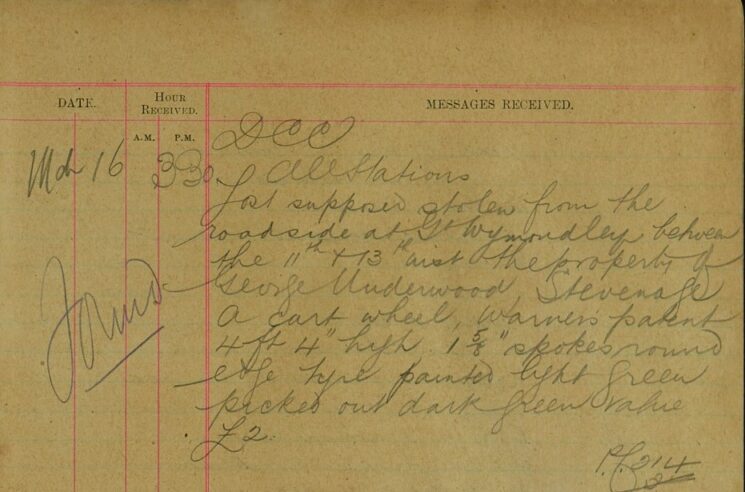 DATE.
HOUR RECEIVED.
MESSAGES RECEIVED.
A.M. P.M.
DCC
Mch 16 3 30 All Stations
Lost supposed stolen from the
roadside at Gt Wymondley between
the 11th & 13th inst the property of
George Underwood Stevenage
A cart wheel, Warners patent
4 ft 4" high 1 5/8" spokes round
edge tyre painted light green
picked out dark green value
£2
Found